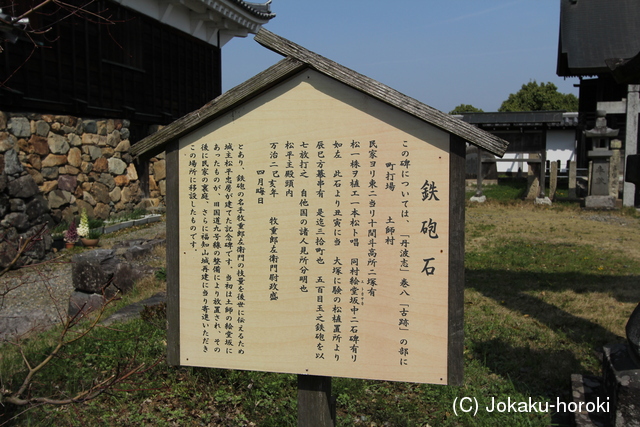 鉄砲石
この碑については、「丹波志」巻八「古跡」の部に
町打場　土師村
民家ヨリ東ニ当リ十間斗高所ニ塚有
松一株ヲ植エ一本松ト唱　同村絵堂坂中ニ石碑有リ
如左　此石より丑寅に当　大塚に験の松植置所より
辰巳方幕串有　是迄三拾町也　五百目玉之鉄砲を以
七放打之　自他国の諸人見所分明也
松平主殿頭内
万治二己亥年　牧重郎左衛門尉政盛
四月晦日
とあり、鉄砲の名手牧重郎左衛門の技量を後世に伝えるため
城主松平忠房が建てた記念碑です。当初は土師の絵堂坂に
あったものが、旧国道九号線の整備により放置され、その
後に民家の裏庭、さらに福知山城再建に当り寄進いただき
この場所に移設したものです。
(C) Jokaku-horoki